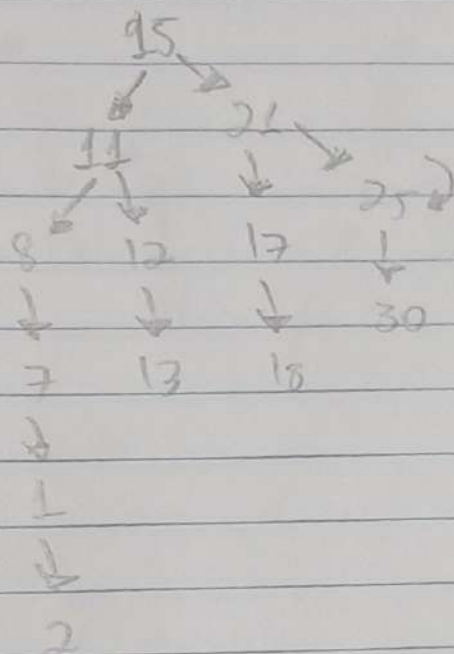 15
11 21
25
8 12 17
30
7 13 18
1
2